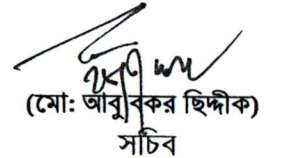 (মো: আবুবকর ছিদ্দীক)
সচিব